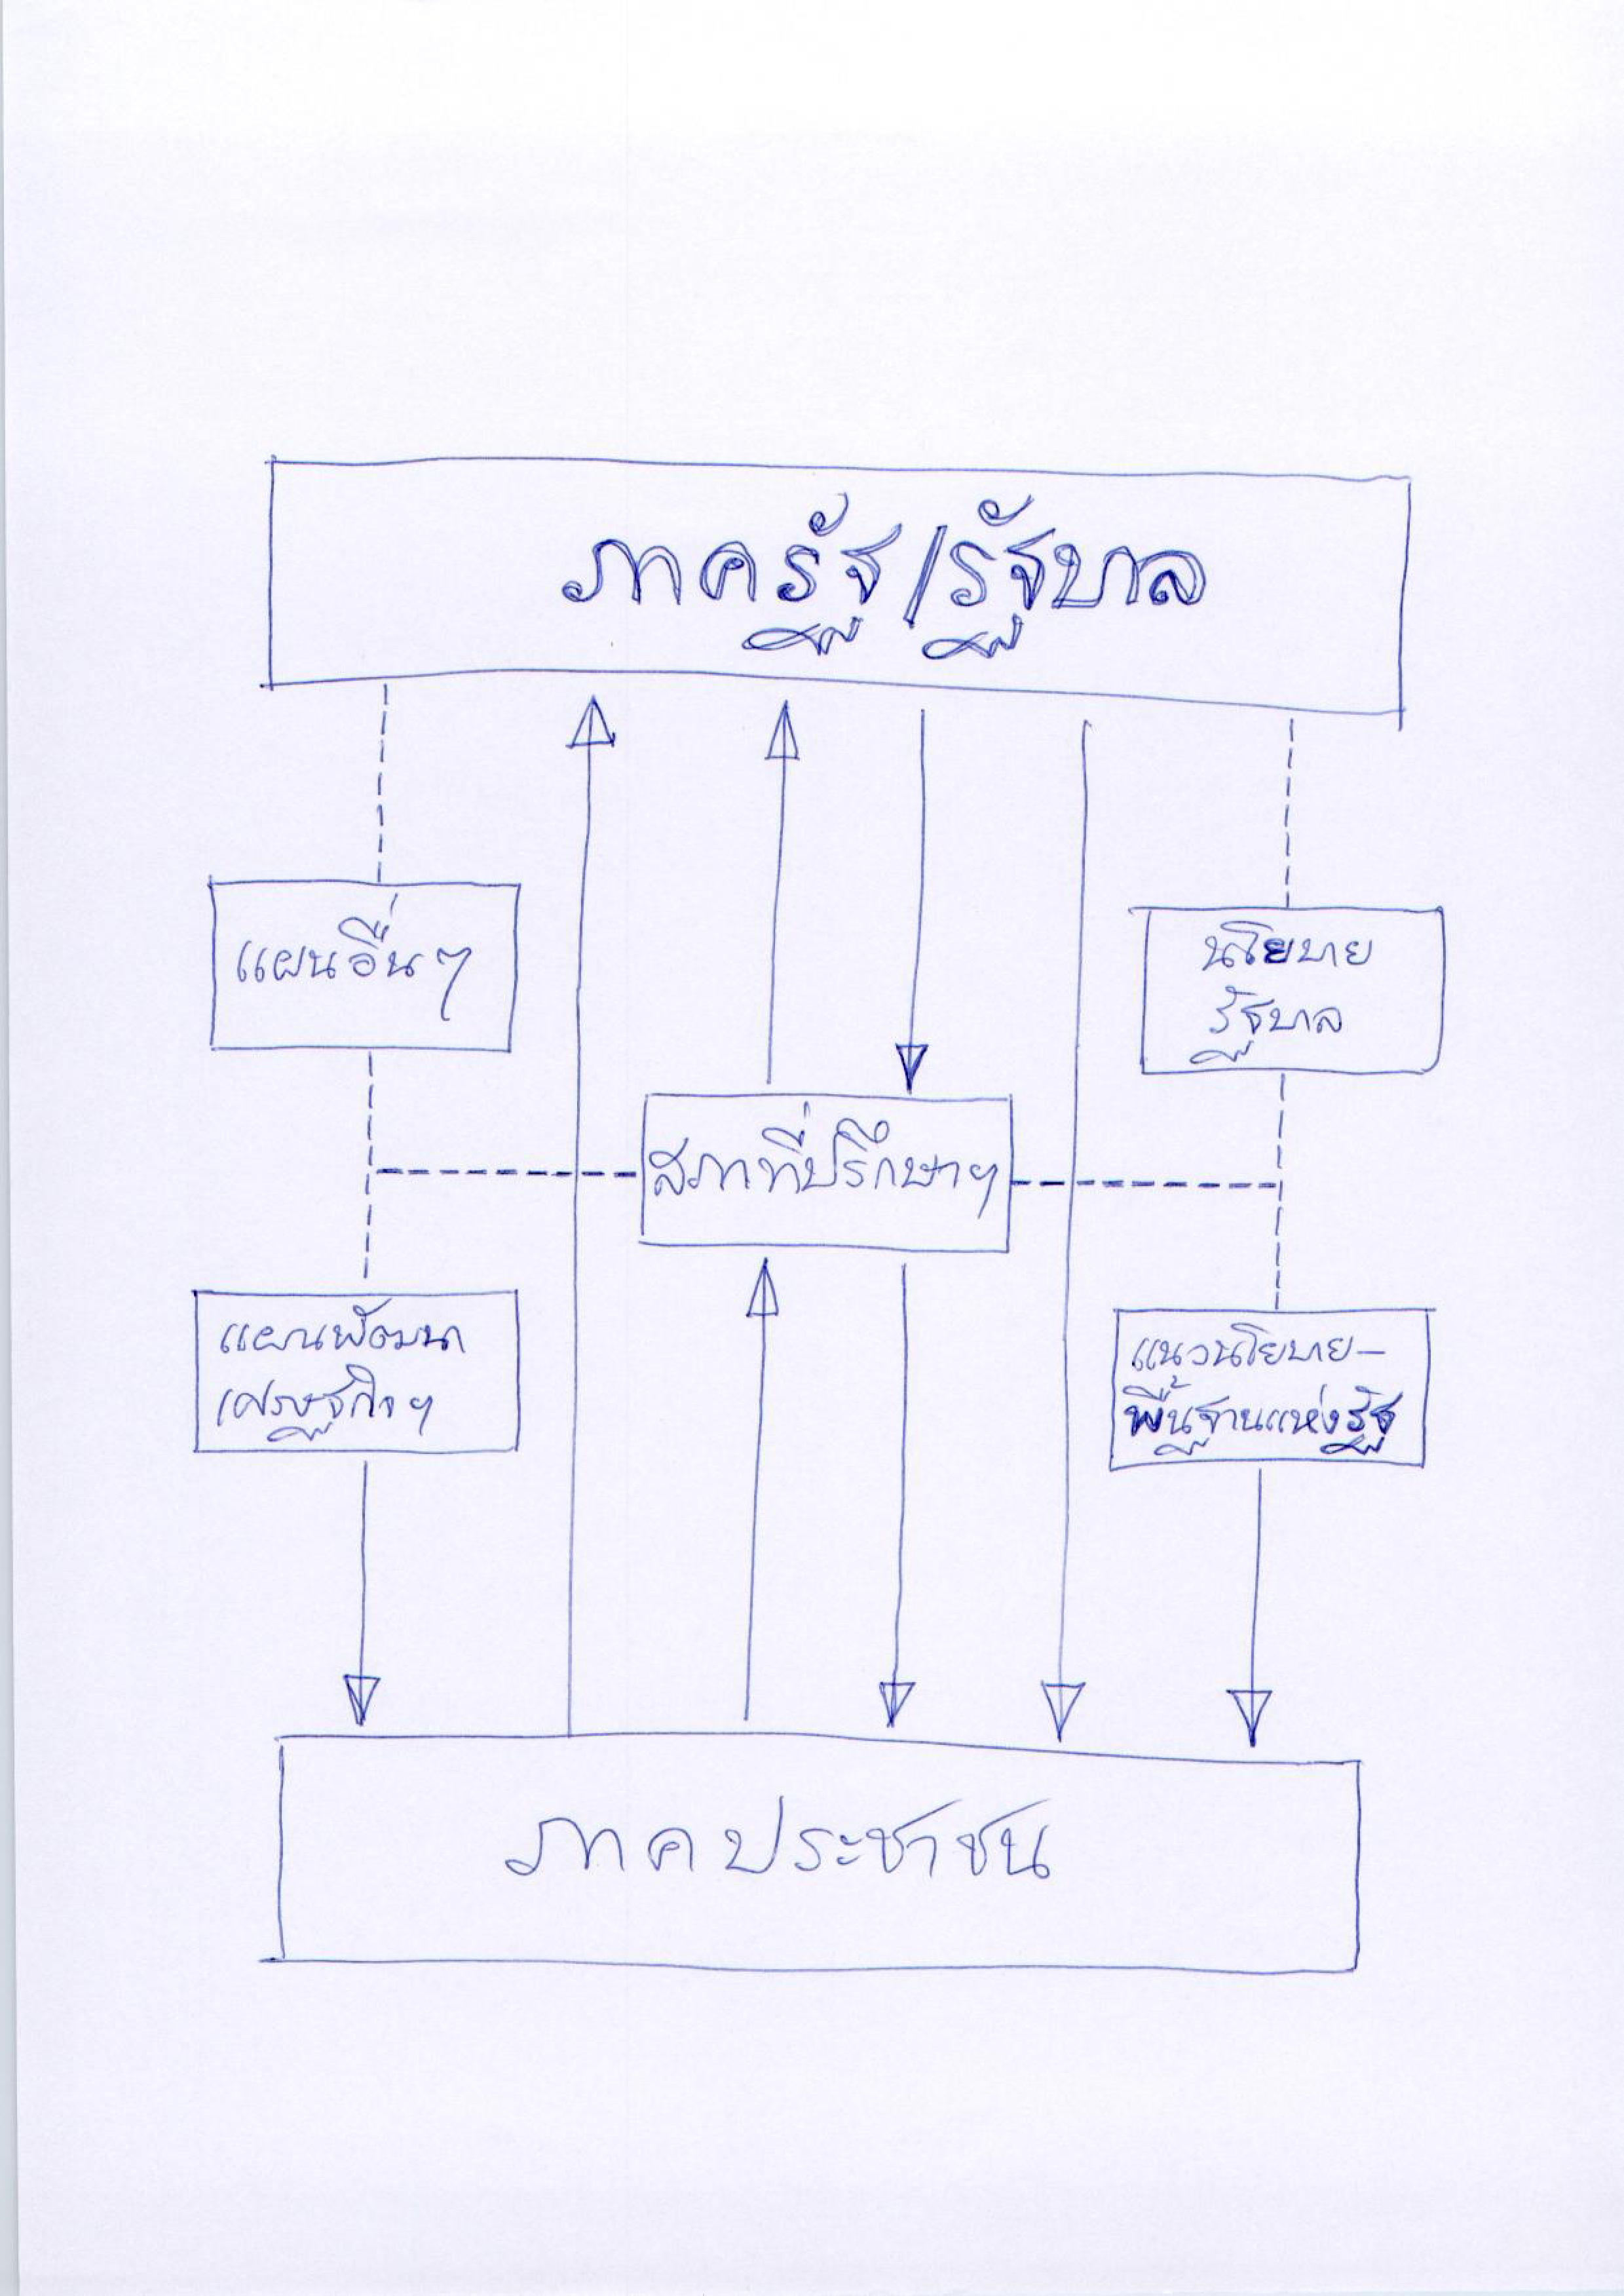 ภาครัฐ/รัฐบาล
แผนอื่นๆ
นโยบาย
รัฐบาล
สภาที่ปรึกษาฯ
แผนพัฒนา
เศรษฐกิจฯ
แนวนโยบาย-
พื้นฐานแห่งรัฐ
ภาคประชาชน